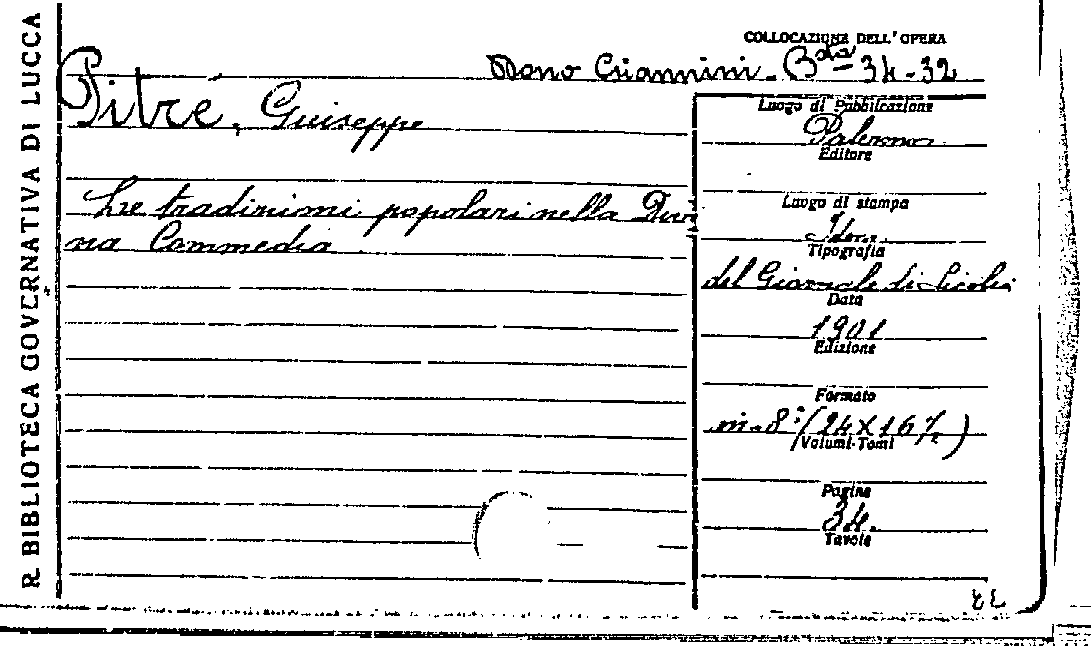 R. BIBLIOTECA GOVERNATIVA DI LUCCA
COLLOCAZIONE DELL'OPERA
Dono Giannini - Bta 34-32
Pitré, Giuseppe
Le tradizioni popolari nella Divi
na Commedia
Luogo di Pubblicazione
Palermo
Editore
Luogo di stampa
Idem
Tipografia
del Giornale di Sicilia
Data
1901
Edizione
Formato
in-8° (24X16½)
Volumi-Tomi
Pagine
34.
Tavole